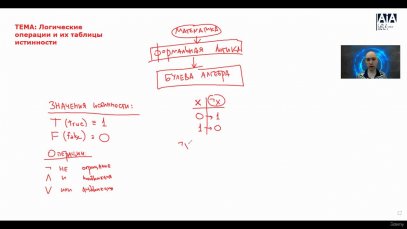 ТЕМА: Логические
операции и их таблицы
истинности
МАТЕМАТИКА
ФОРМАЛЬНАЯ ЛОГИКА
БУЛЕВА АЛГЕБРА
ЗНАЧЕНИЯ ИСТИННОСТИ:
T (true) = 1
F (false) = 0
Операции:
¬ НЕ отрицание
∧ И
∨ ИЛИ
x ¬x
0 → 1
1 → 0